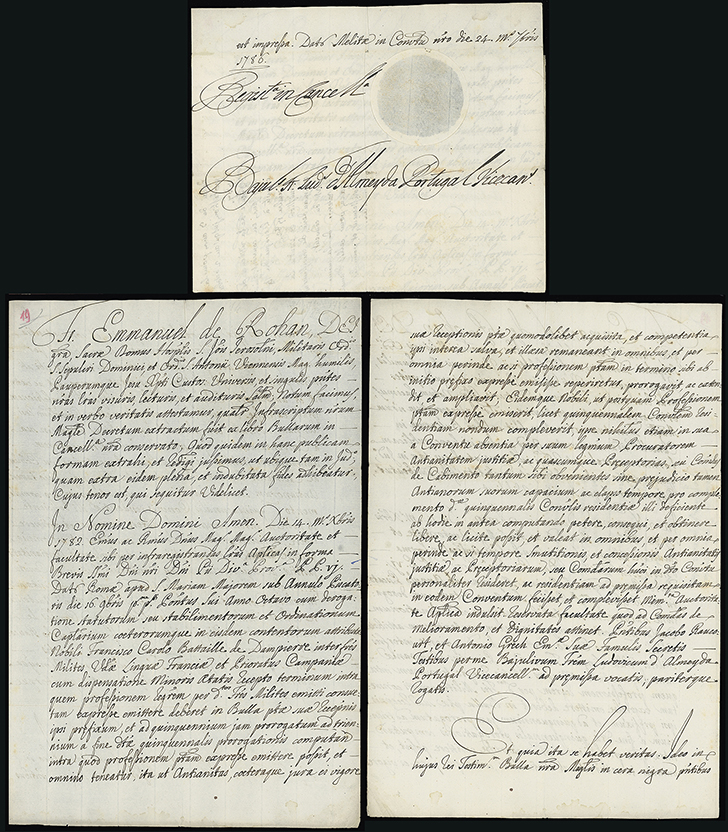 est impressa. Datũ Melitæ in Conṽtu nr̃o die 24. Mẽ. 7bris
1786.
Regist.ta in Cancell.a
Bajul.s fr. Lud.s d'Almeyda Portugal Vicecan.s
19
Fr. Emmanuel de Rohan, DEI
grã Sacræ Domus Hospĩlis S. Jõis Jerosolnĩ, Militaris Ordĩs
S. Sepulcri Dominici et Ordĩs S. Antonii Viennensis Mag.r humilis
Pauperumque Jesu Xp̃ti Custos. Universis et singulis pn̄tes
nr̃as Lr̃as visuris, lecturis, et audituris Salut̃. Notum facimus,
et in verbo veritatis attestamur, qualr̃ Infrascriptum nr̃um
Magl̃e Decretum extractum fuit ex libro Bullarum in
Cancell.a nr̃a conservato, Quod quidem in hanc publicam
formam extrahi, et redigi jussimus, ut ubique tam in Jud.o
quam extra eidem plena, et indubitata fides adhibeatur.
Cujus tenor est, qui sequitur Videlicet.
In Nomine Domini Amen. Die 14. Mẽ. Xbris
1782. Em̃us ac Rm̃us Dñus Mag.r Mag.r Auctoritate et
facultate sibi per infraregistrandas Lr̃as Aplĩcas in forma
Brevis Ssm̃i Dñi nr̃i Dñi Pii Divĩa Provĩa P. P. VI.
Datũ Romæ apud S. Mariam Majorem sub Annulo Piscato-
ris die 16. 9bris p.o p.o Pontũs sui Anno Octavo cum deroga-
tione Statutorum seu stabilimentorum et Ordinationum
Caplarium cœterorumque in eisdem contentorum attributa
Nobili Francisco Carolo Battaille de Dampierre inter frẽs
Milites Vn̄dæ Linguæ Franciæ et Prioratus Campaniæ
cum dispensatione Minoris Ætatis recepto terminum intra
quem professionem regr̃em per d.os frẽs Milites emitti consue-
tam expresse emittere deberet in Bulla ptæ suæ recep̃nis
ipsi præfixum, et ad quinquennium jam prorogatum ad trien-
nium à fine dt̃æ quinquennalis prorogationis computan̄
intra quod professionem ptam expresse emittere possit, et
omnino teneatur, ita ut Antianitas, cœteraque jura ei vigore
suæ receptionis ptæ quomodolibet acquisita, et competentia
ipsi interea salva, et illæsa remaneant in omnibus, et per
omnia perinde ac si professionem ptam in termino sibi ab
initio præfixo expresse emisisse reperiretur, prorogavit, ac exten-
dit et ampliavit; Eidemque Nobili, ut postquam Professionem
ptam expresse emiserit, licet quinquennalem Convtũm Resi-
dentiam nondum compleverit ipse nihilus etiam in sua
a Conventu absentia per suum legmum Procuratorem
Antianitatem justitiæ, ac quascumque Præceptorias, seu Coñdas
de Cabimento tantum sibi obvenientes sine præjudicio tamen
Antianorum suorum capacium ac elapso tempore pro comple-
mento d.æ quinquennalis Convlis residentiæ illi deficiente
ab hodie in antea computando petere, consequi, et obtinere
libere, ac licite possit et valeat in omnibus, et per omnia
perinde ac si tempore Smutitionis et concessionis Antianitatis
justitiæ, ac Præceptoriarum, seu Comdarum hujusmodi in Dto Convtu
personaliter resideret, ac residentiam ad præmissa requisitam
in eodem Conventum fecisset, et complevisset Mem.ta Auctorita-
te Aplĩca indulsit reservata facultate quod ad Comdas de
Melioramento, et Dignitates attinet. Pntibus Jacobo Raucc-
urt, et Antonio Grech Em.æ Suæ Famulis Secretis
Testibus per me Bajulivum Frem Ludovicum d'Almeyda
Portugal Vicecancell.m ad præmissa vocatis, pariterque
rogatis.
Et quia ita se habet veritas. Ideo in
hujus rei Testim.m Bulla nr̃a Magl̃is in cera negra pn̄tibus